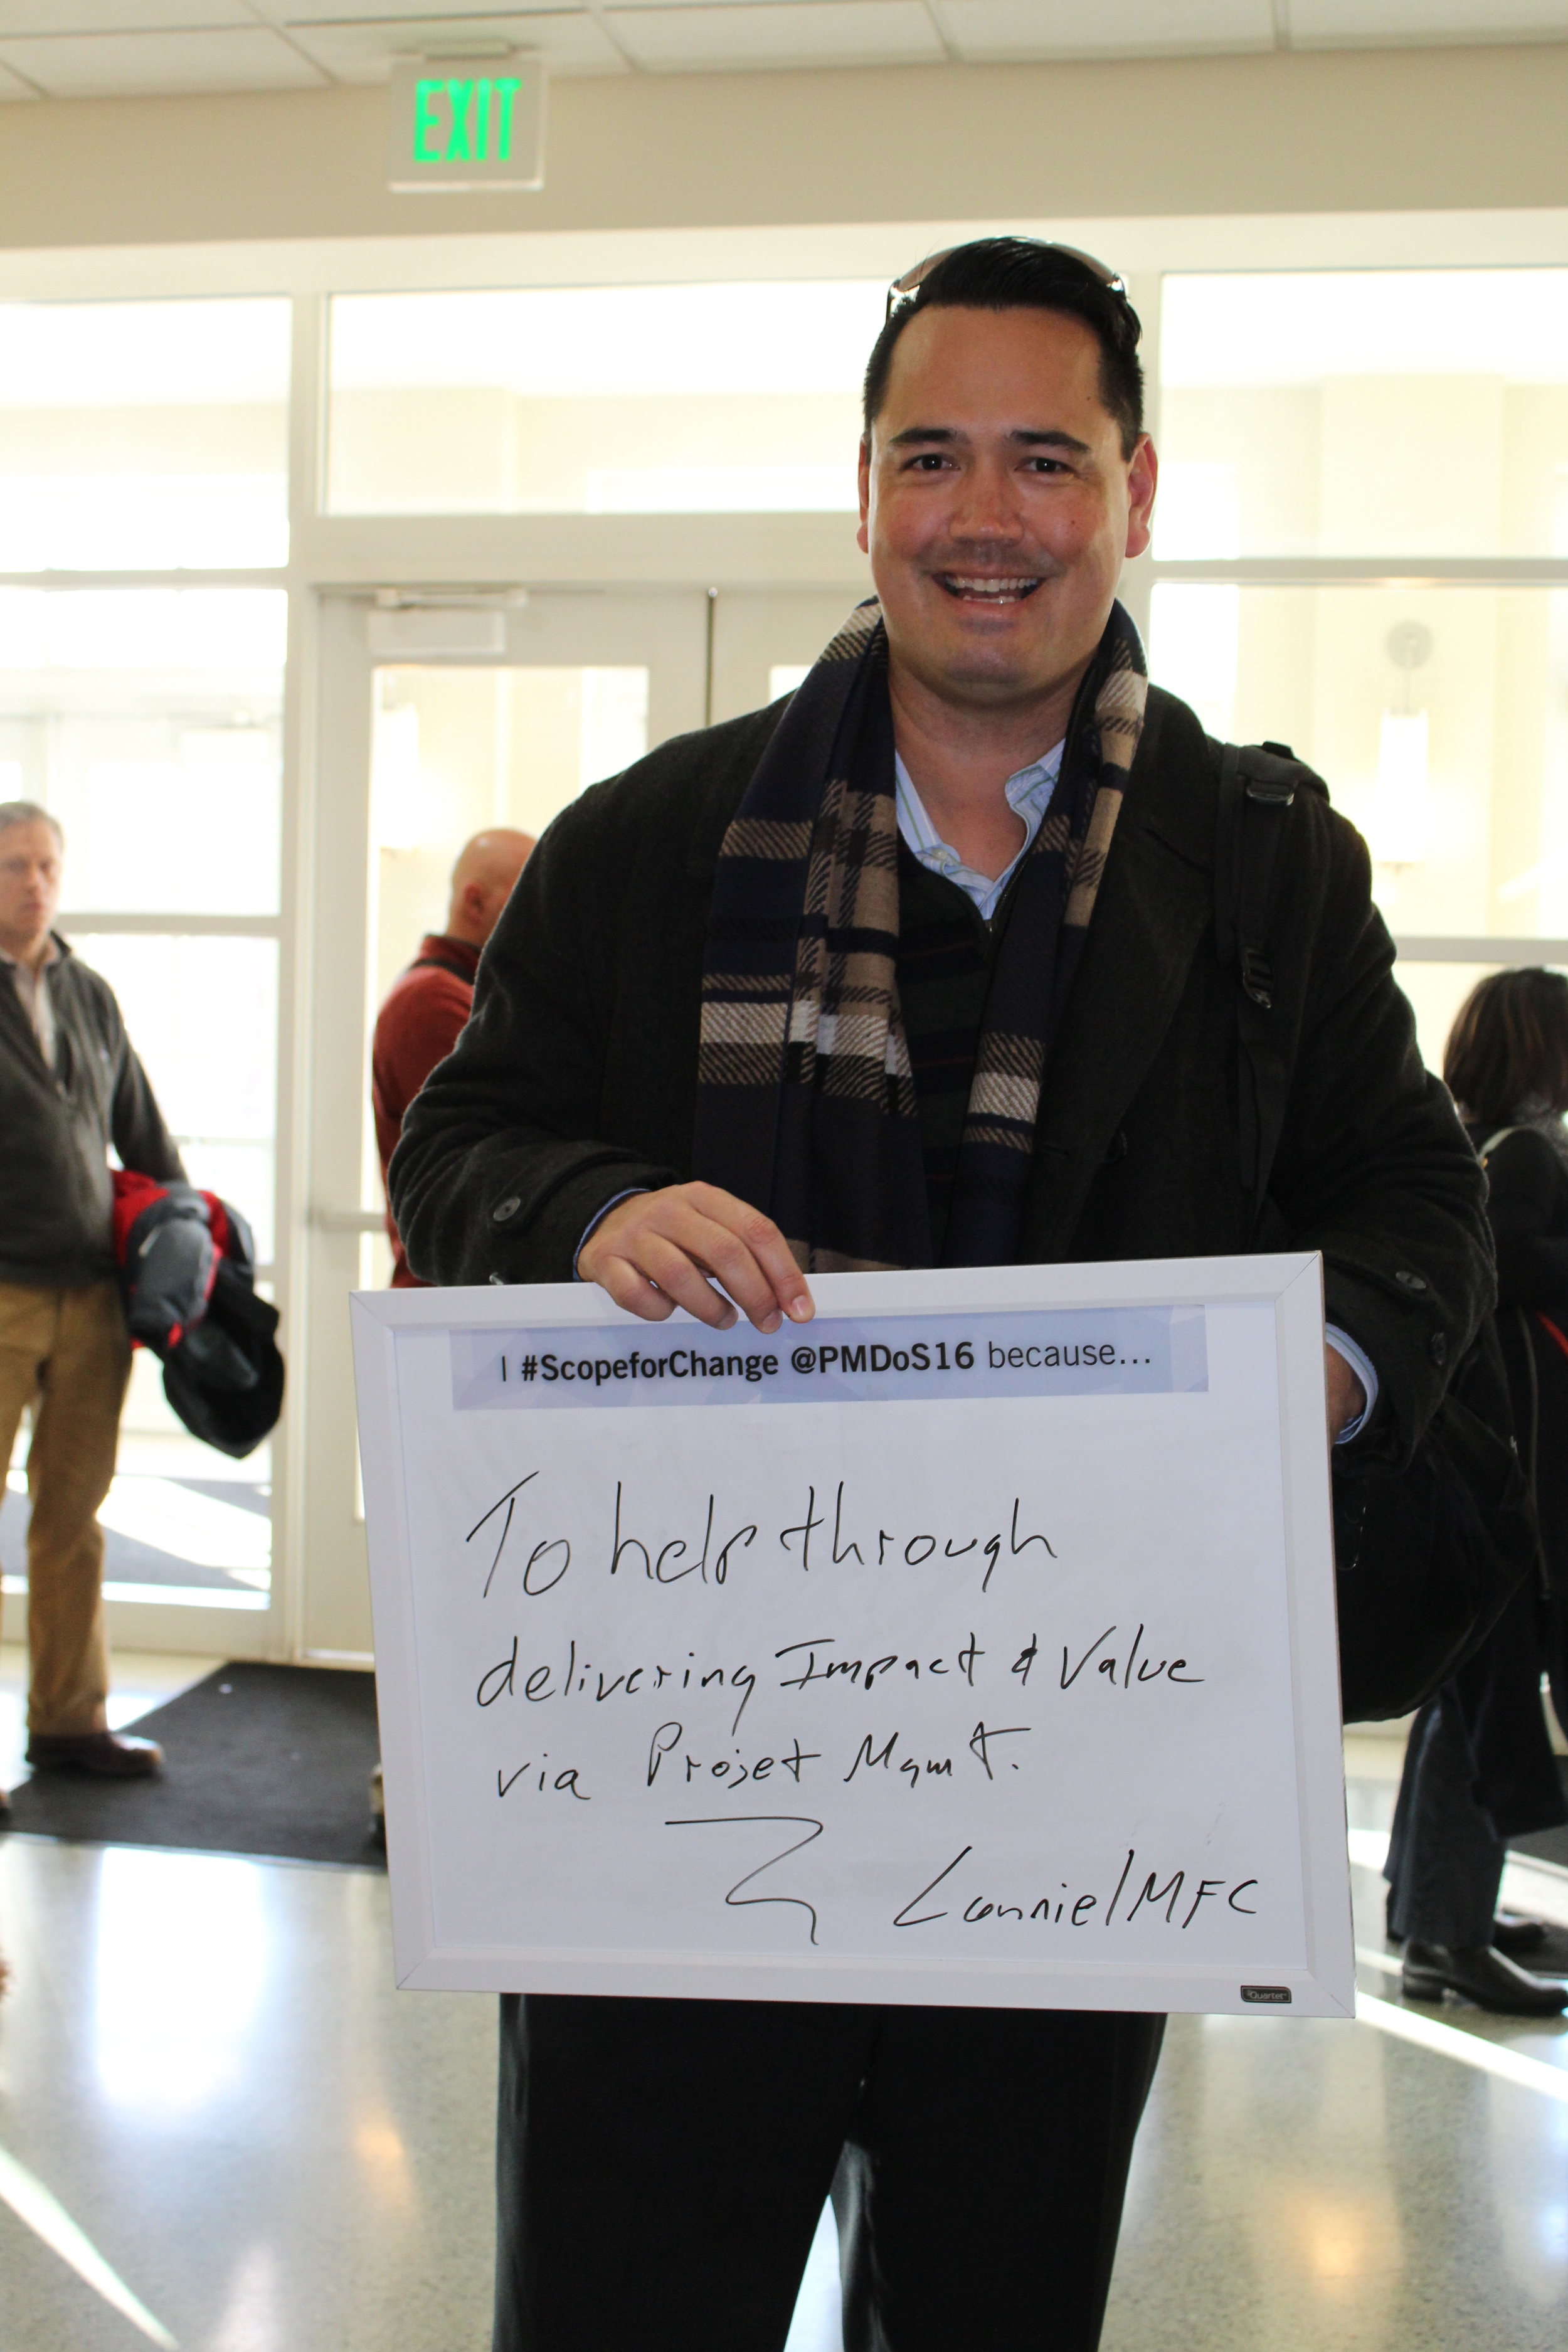 EXIT
I #ScopeforChange @PMDoS16 because...
To help through
delivering Impact & Value
via Projet Mgmt.
Lonnie/MFC
Quartet